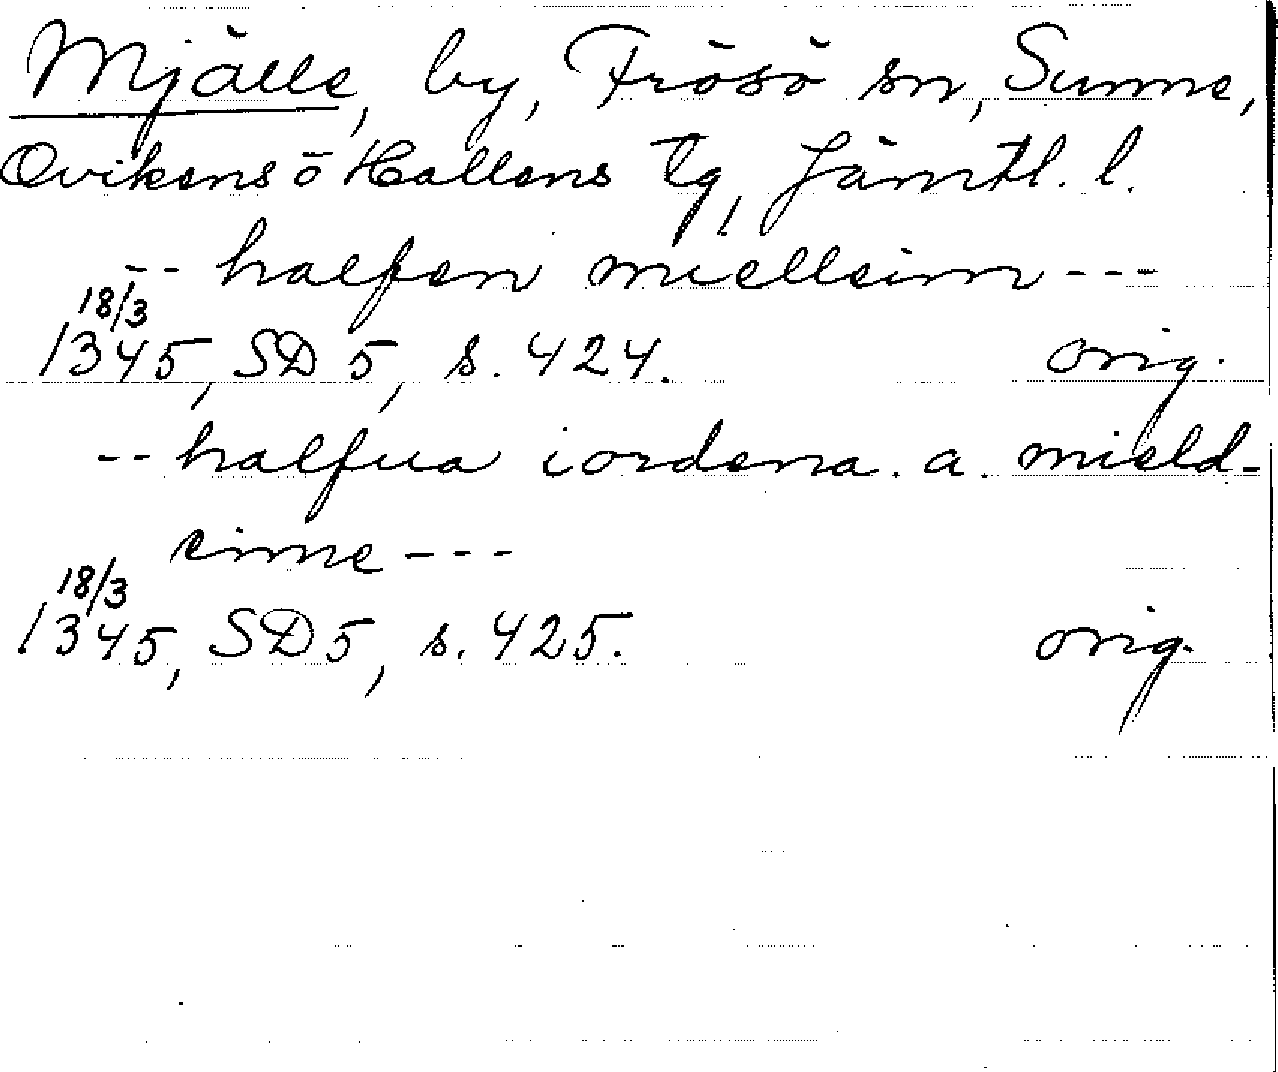 Mjälle, by, Frösö sn, Sunne,
Ovikens o Hallens tg, Jämtl. l.
-- halfen mielleim ---
18/3
1345, SD 5, s. 424. orig.
-- halfua iordena . a . mield-
eime ---
18/3
1345, SD 5, s. 425. orig.